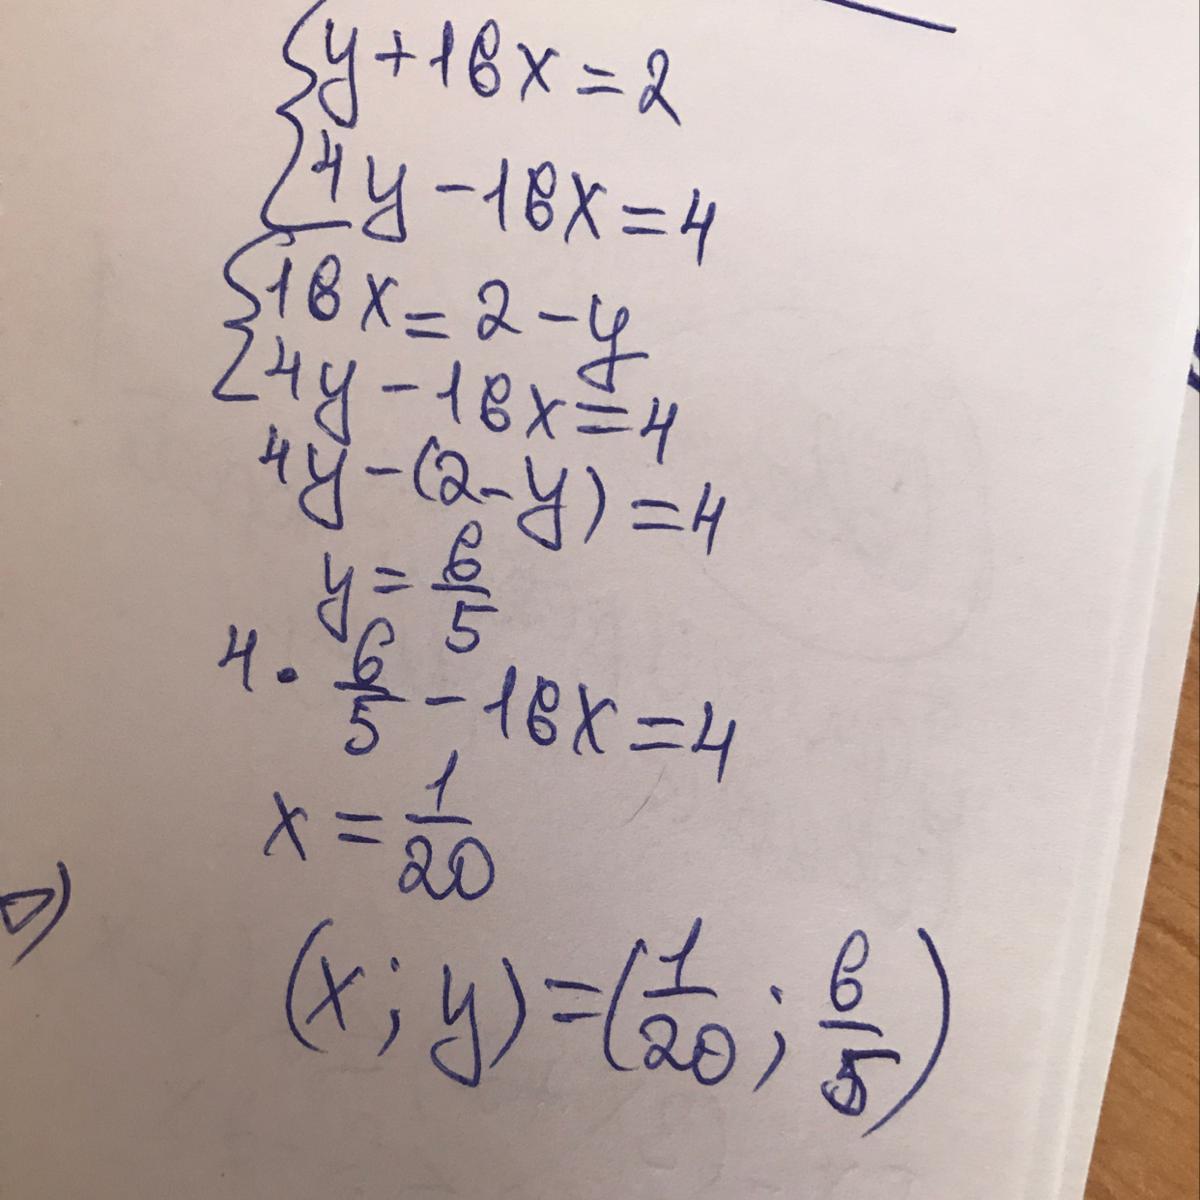 {y+16x=2
{4y-16x=4
{16x=2-y
{4y-16x=4
4y-(2-y)=4
y=6/5
4·6/5-16x=4
x=1/20
(x;y)=(1/20;6/5)